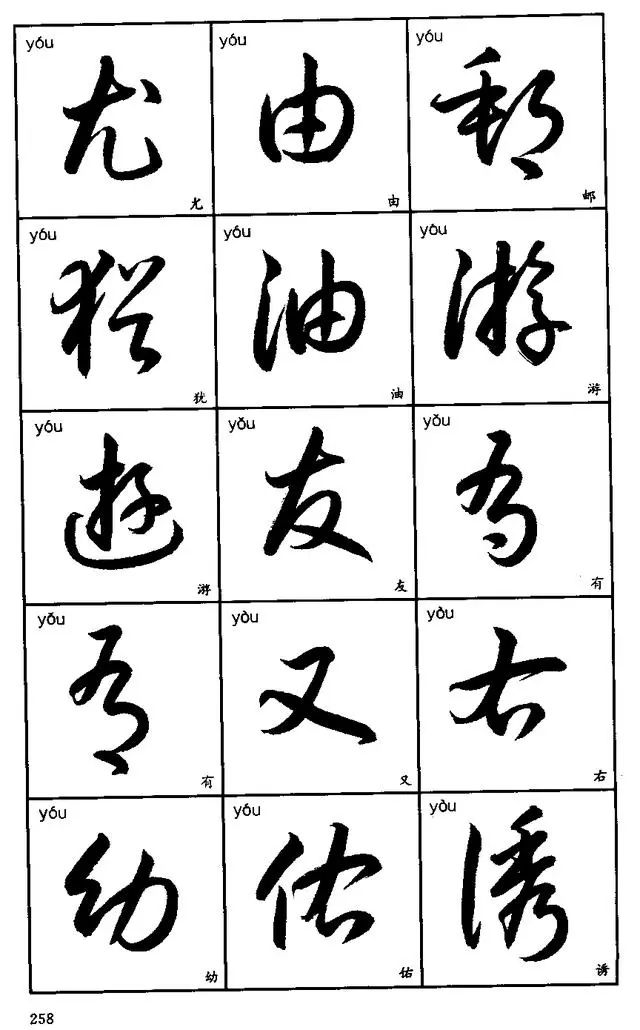 yóu yóu yóu
尤 由 郵
尤 由 邮
yóu yóu yóu
猶 油 游
犹 油 游
yóu yǒu yǒu
遊 友 有
游 友 有
yǒu yòu yòu
有 又 右
有 又 右
yóu yóu yòu
幼 佑 誘
幼 佑 诱
258